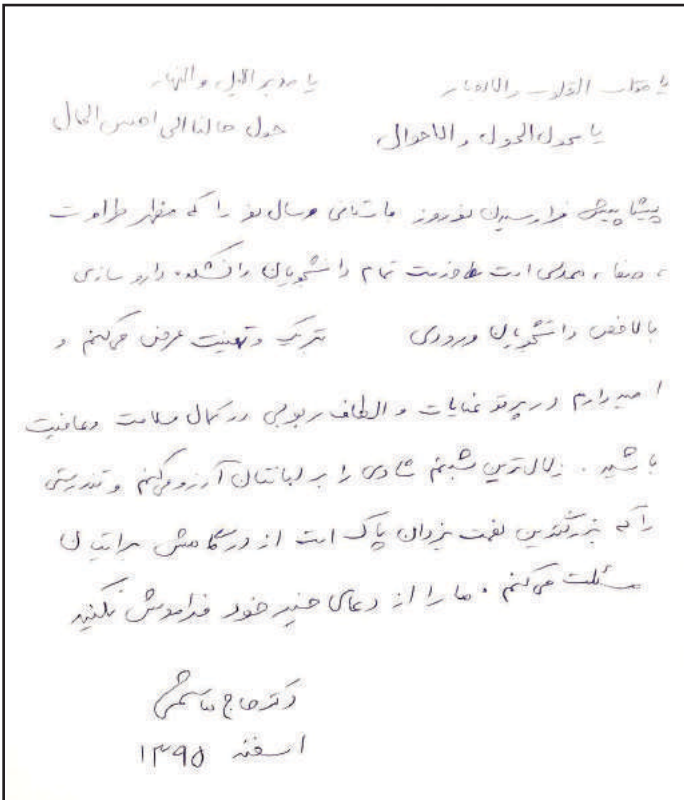 یا مقلب القلوب و الابصار یا مدبر اللیل و النهار
یا محول الحول و الاحوال حول حالنا الی احسن الحال
پیشاپیش فرارسیدن نوروز باستانی و سال نو را که مظهر طراوت
، صفا، همدلی است خدمت تمام دانشجویان دانشکده داروسازی
بالاخص دانشجویان ورودی تبریک و تهنیت عرض میکنم و
امیدوارم در پرتو عنایات و الطاف ربوبی در کمال سلامت و عافیت
باشید. زلال‌ترین شبنم شادی را بر لبانتان آرزو میکنم و تندرستی
را که بزرگترین نعمت یزدان پاک است از درگاهش برایتان
مسئلت میکنم. ما را از دعای خیر خود فراموش نکنید
دکتر حاج
اسفند ۱۳۹۵